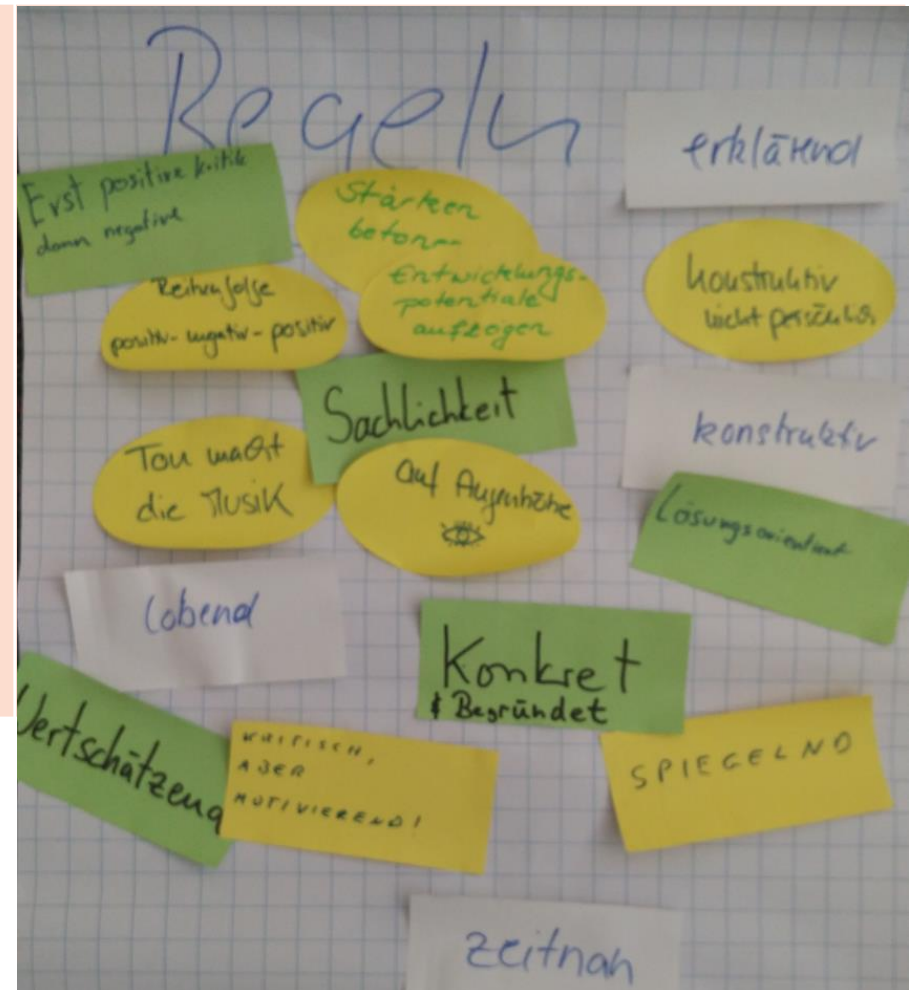 Regeln
erklärend
Erst positive kritik
dann negative
Stärken
betonen
Reihenfolge
positiv - negativ - positiv
Entwicklungs-
potentiale
aufzeigen
Konstruktiv
nicht persönlich
Sachlichkeit
konstruktiv
Ton macht
die Musik
auf Augenhöhe
Lösungsorientiert
lobend
Konkret
& Begründet
Wertschätzend
KRITISCH,
ABER
MOTIVIEREND!
SPIEGELND
zeitnah